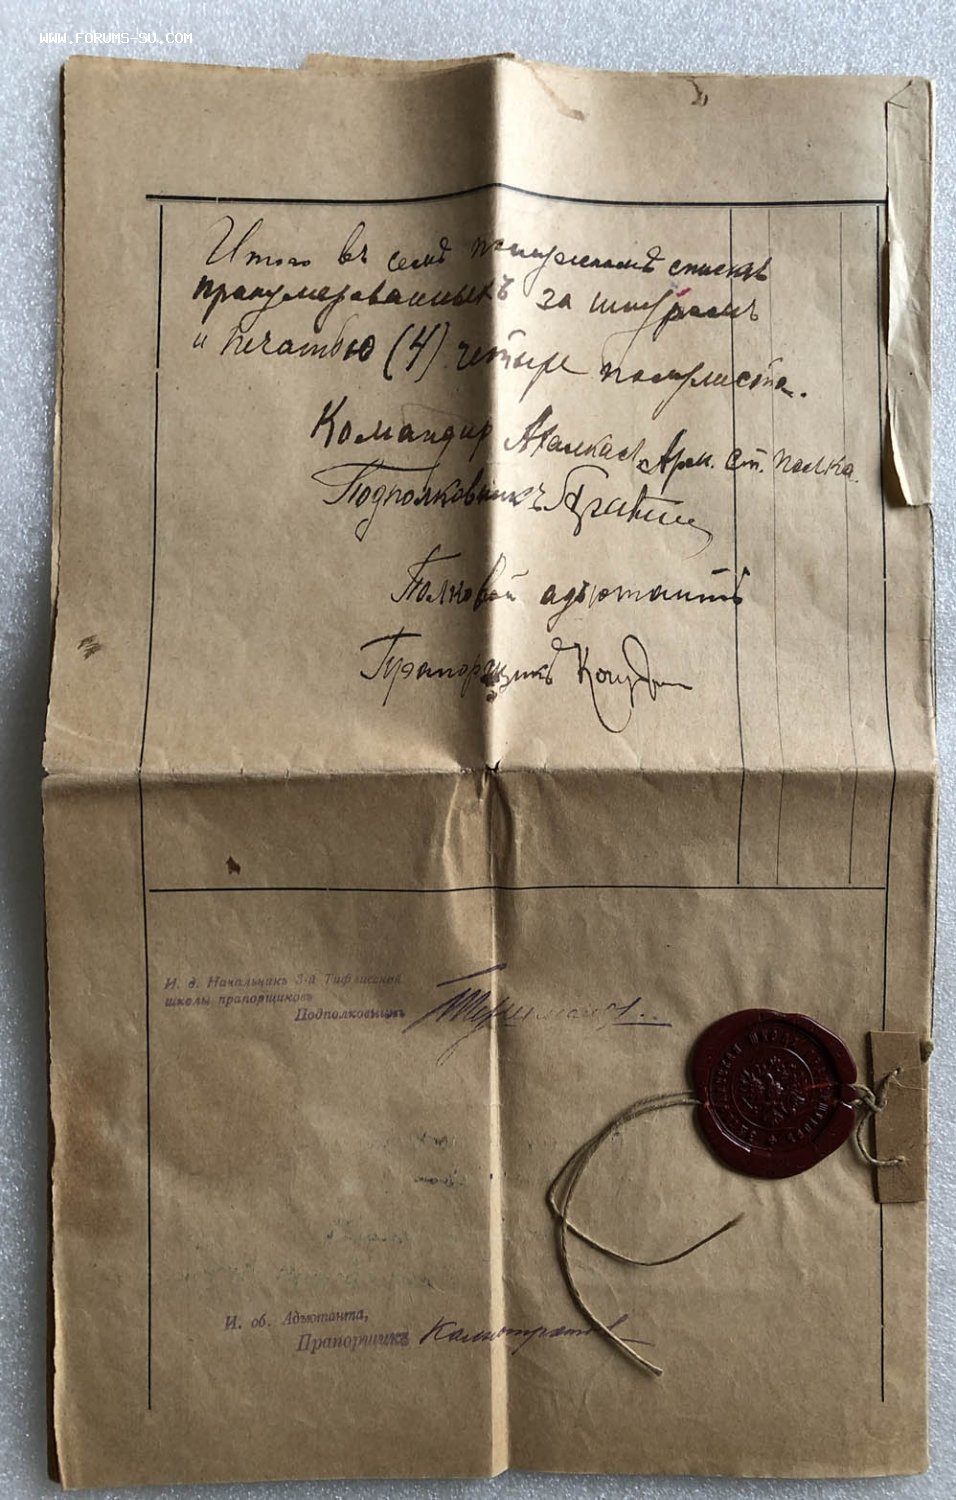 WWW.FORUMS-SU.COM
Итого въ семъ послужномъ списке
пронумерованныхъ за шнуромъ
и печатью (4) четыре полулиста.
Командир Арм. Ст. полка.
Подполковникъ
Полковой адъютантъ
Прапорщикъ
И. д. Начальникъ 3-й Тифлисской
школы прапорщиковъ
Подполковникъ
И. об. Адъютанта,
Прапорщикъ